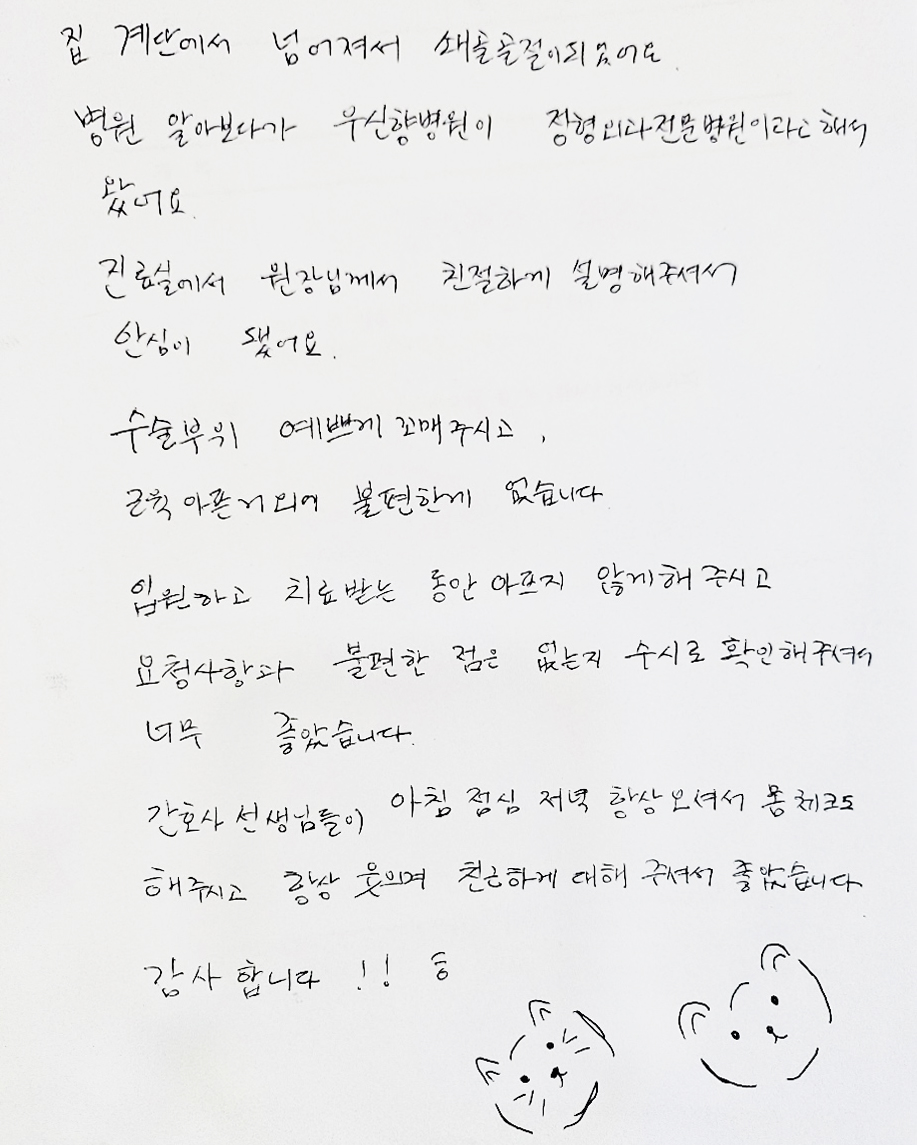 집 계단에서 넘어져서 쇄골골절이되었어요.
병원 알아보다가 우신향병원이 정형외과전문병원이라고해서
왔어요.
진료실에서 원장님께서 친절하게 설명해주셔서
안심이 됐어요.
수술부위 예쁘게 꼬매주시고,
근육아픈거외에 불편한게 없습니다
입원하고 치료받는 동안 아프지 않게해 주시고
요청사항과 불편한 점은 없는지 수시로 확인해주셔서
너무 좋았습니다.
간호사 선생님들이 아침 점심 저녁 항상오셔서 몸체크도
해주시고 항상 웃으며 친근하게 대해 주셔서 좋았습니다
감사합니다 !!